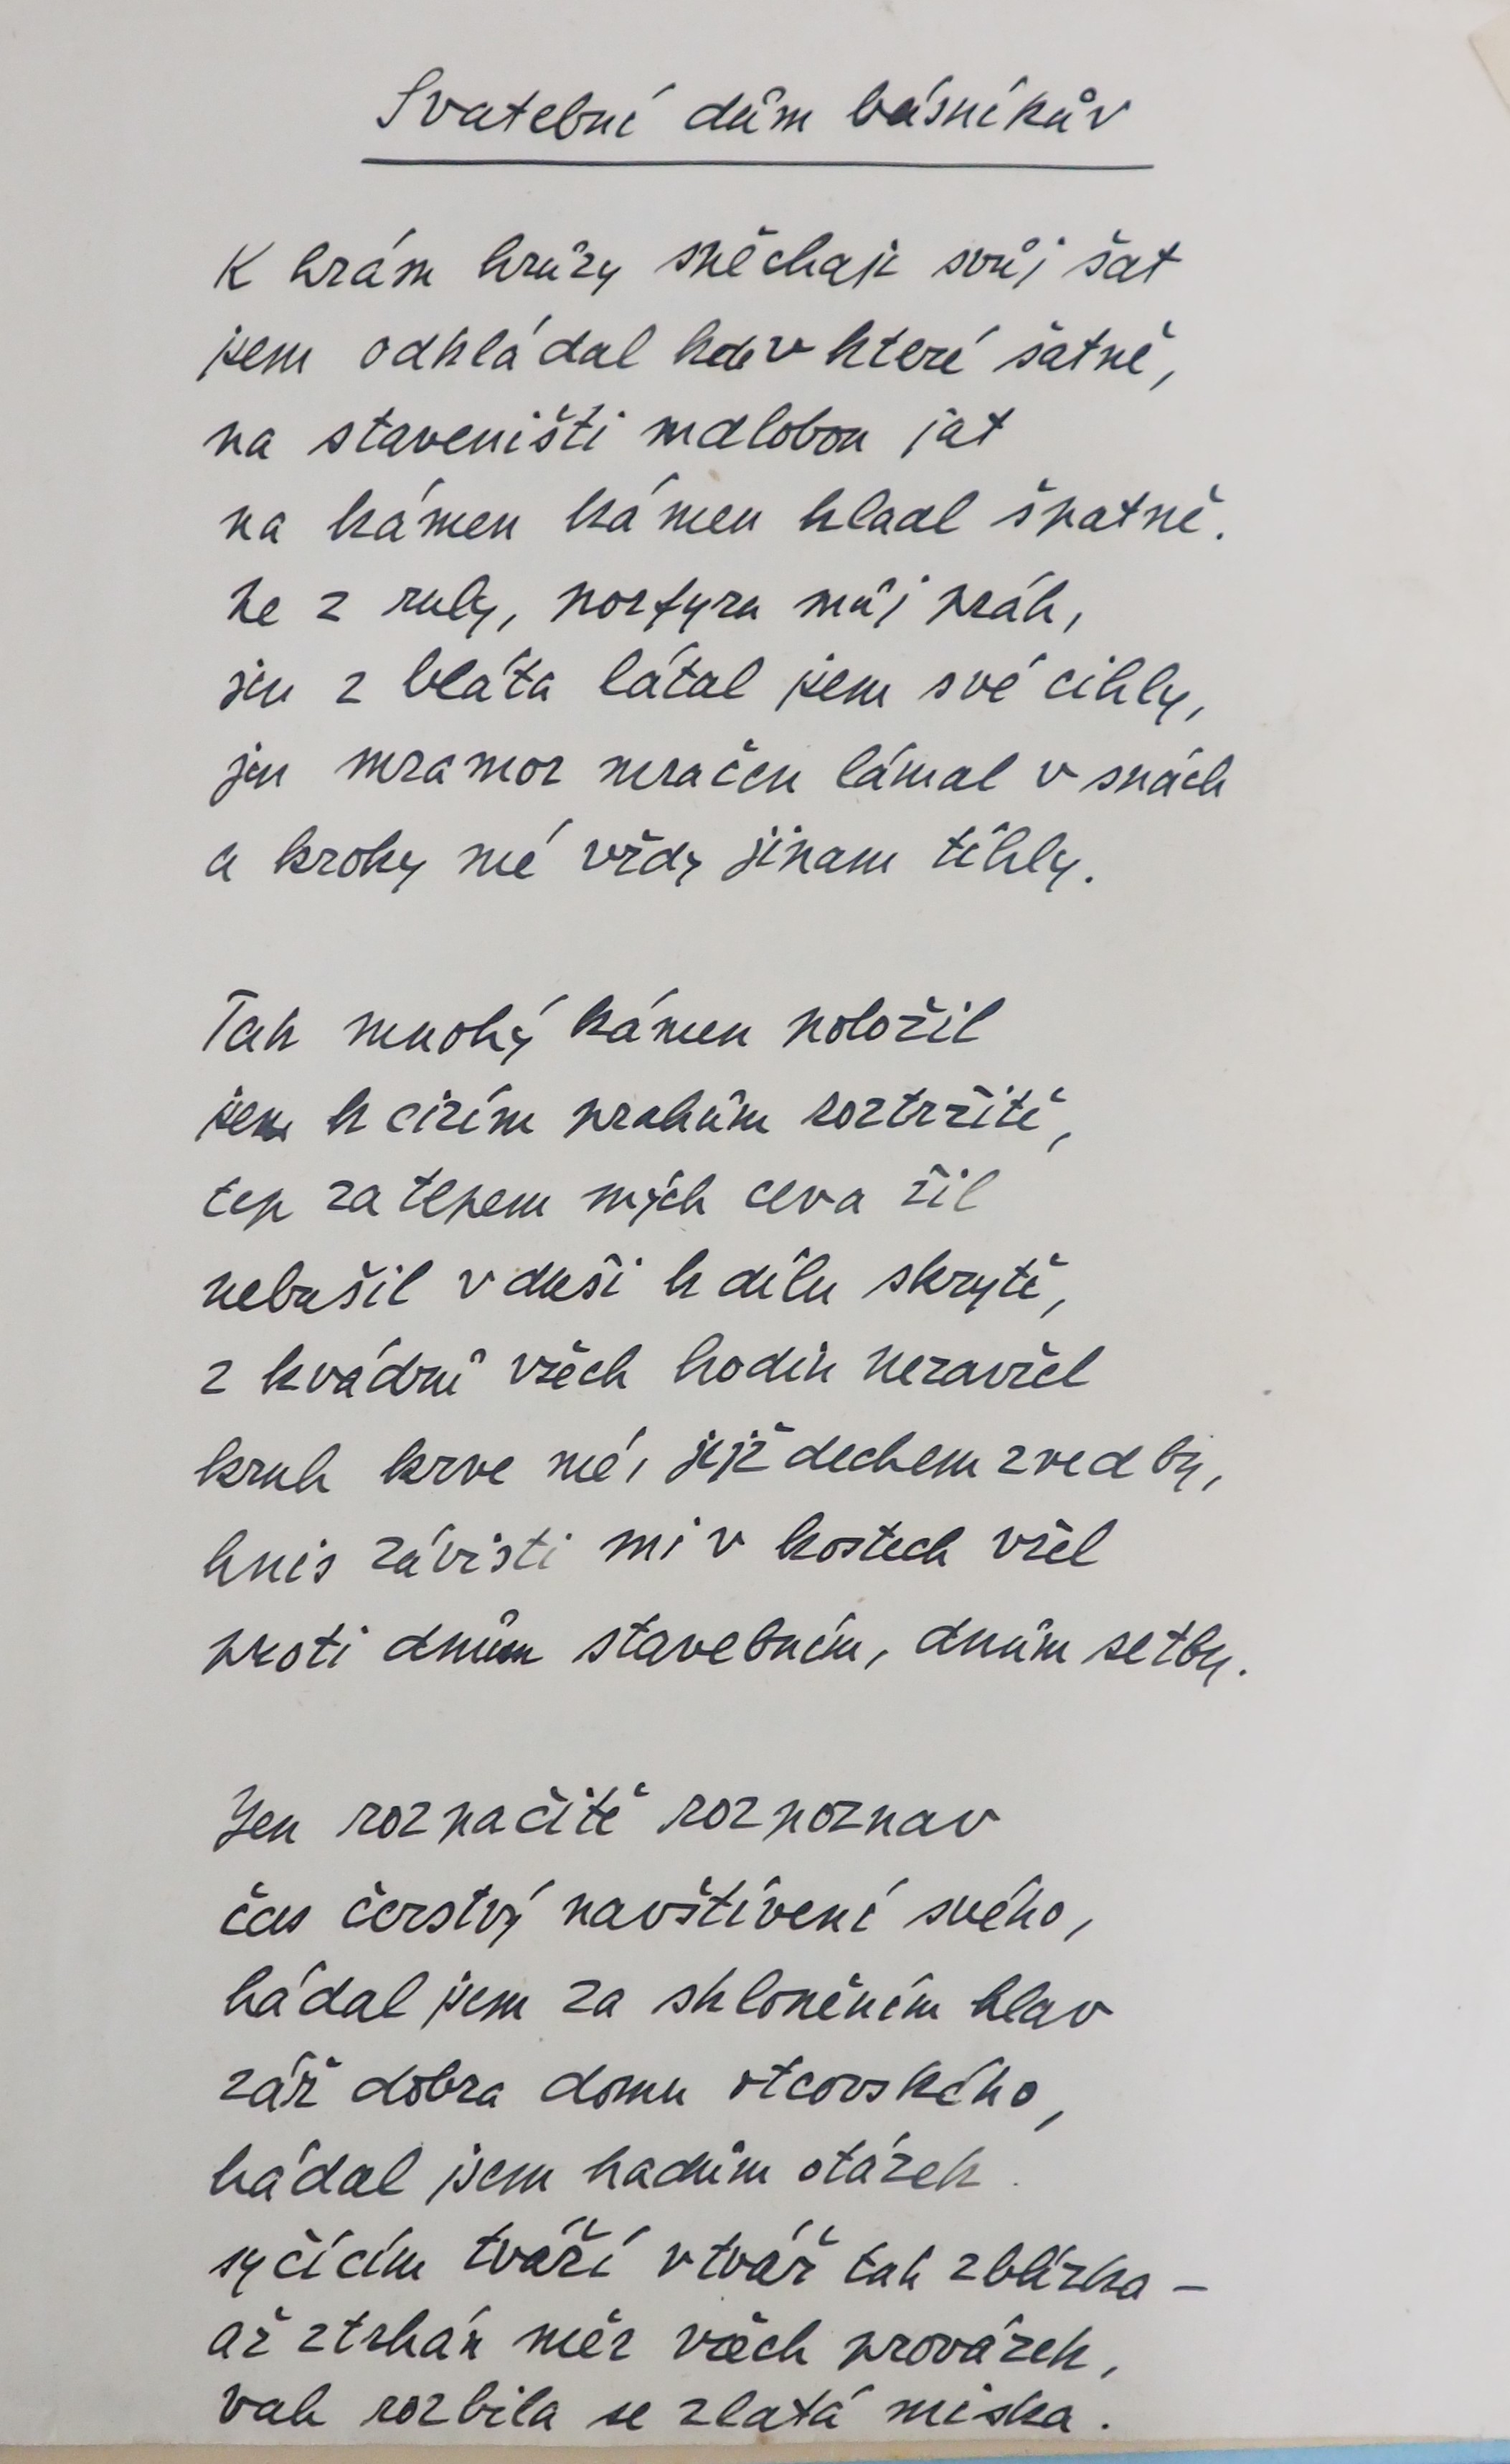 Svatební dům básníkův
K hrám hrůzy spěchaje svůj šat
jsem odkládal kdo v které šatně,
na staveništi mdlobou jat
na kámen kámen kladl špatně.
Ne z ruly, porfyru můj práh,
jen z bláta látal jsem své cihly,
jen mramor mračen lámal v snách
a kroky mé vždy jinam tíhly.
Tak mnohý kámen položil
jsem k cizím prahům roztržitě,
tep za tepem mých ceva žil
nebušil v duši k dílu skrytě,
z kvádrů všech hodin nezavřel
kruh krve mé, jejž dechem zved by,
hnis závisti mi v kostech vřel
proti dnům stavebním, dnům setby.
Jen rozpačitě rozpoznav
čas čerstvý navštívení svého,
hádal jsem za skloněním hlav
zář dobra domu otcovského,
hádal jsem hadům otázek
syčícím tváří v tvář tak zblízka –
až ztrhán měr všech provázek,
vah rozbila se zlatá miska.